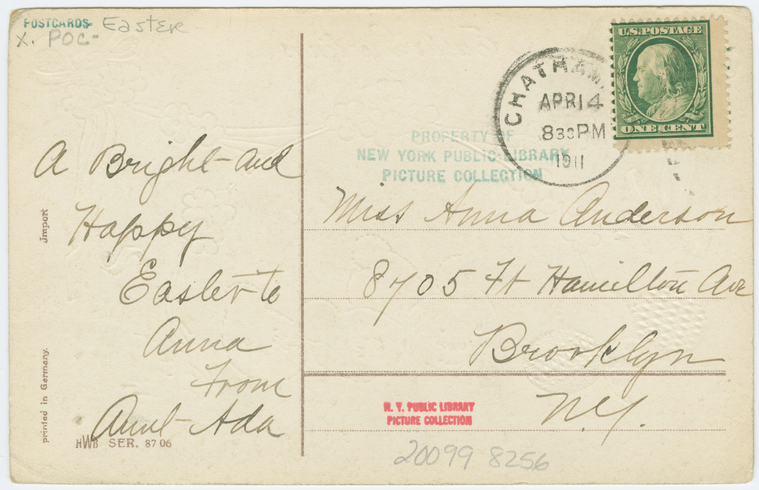 POSTCARDS Easter
X. POC-
U.S. POSTAGE
ONE CENT
CHATHAM
APR 14
830 PM
1911
PROPERTY OF
NEW YORK PUBLIC LIBRARY
PICTURE COLLECTION
A Bright and
Happy
Easter to
Anna
From
Aunt Ada
Miss Anna Anderson
8705 Ft Hamilton Ave
Brooklyn
N.Y.
Import
printed in Germany.
HWB SER. 8706
N. Y. PUBLIC LIBRARY
PICTURE COLLECTION
20099 8256